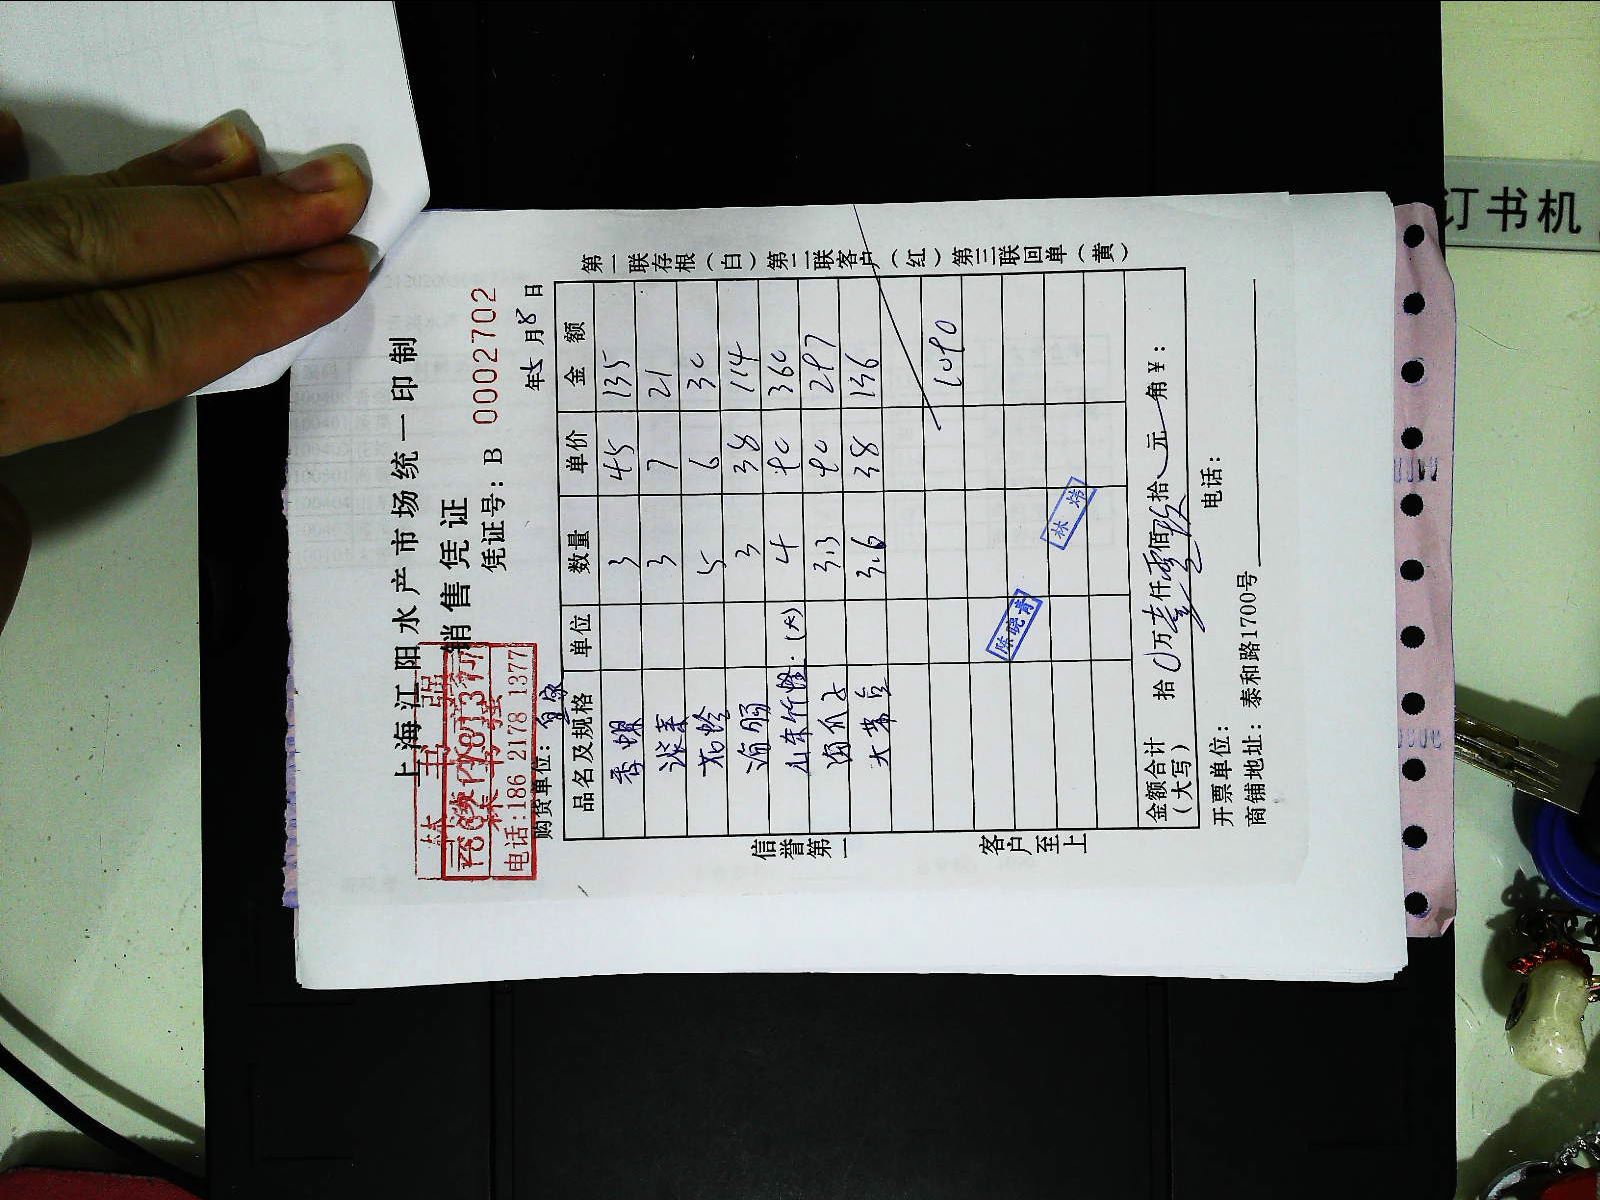 上海江阳水产市场统一印制
销售凭证
凭证号：B 0002702
林书强
电话:186 2178 1377
购货单位：
年 5 月 8 日
品名及规格 单位 数量 单价 金额
香螺 3 45 135
3 7 21
花蛤 5 6 30
海肠 3 38 114
山东竹蛏.(大) 4 90 360
海瓜子 3.3 90 297
3.6 38 136
1090
陈晓青
林炜
金额合计
（大写）
拾 0 万 壹 仟 零 佰 玖 拾 元 角 ¥：
开票单位： 电话：
商铺地址：泰和路1700号
信誉第一
客户至上
第一联存根（白）第二联客户（红）第三联回单（黄）
订书机